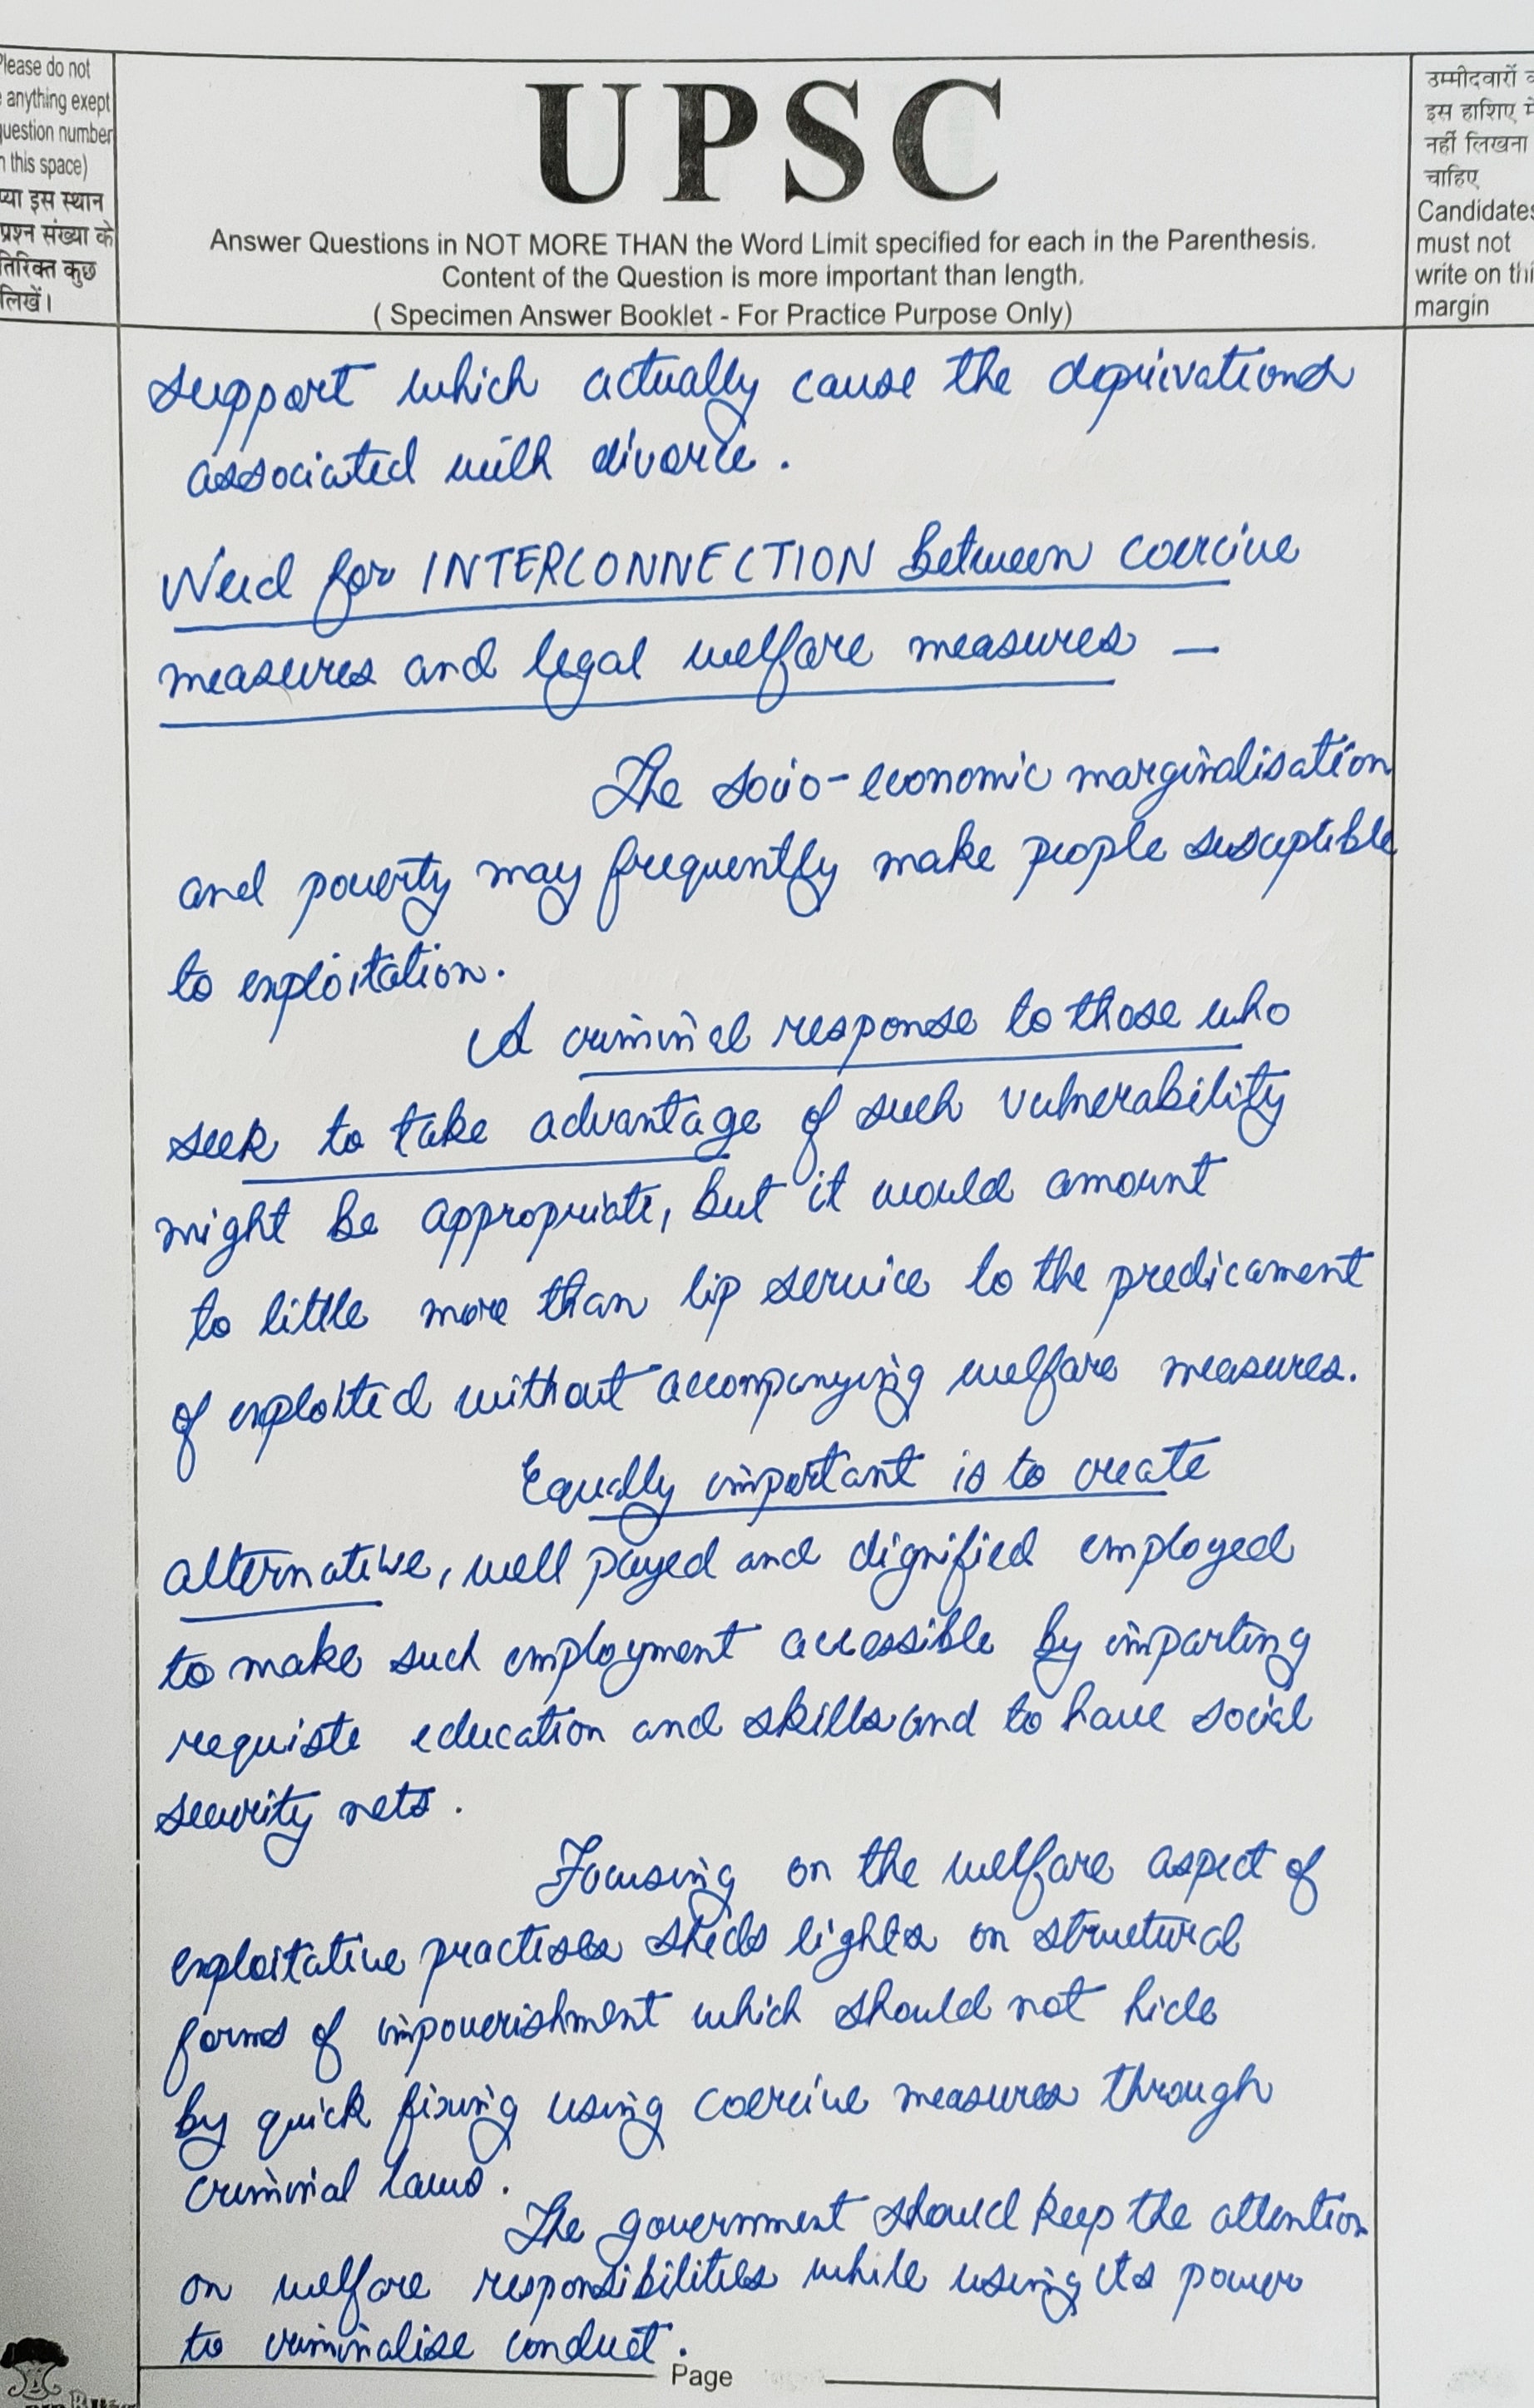 Please do not
anything exept
question number
this space)
इस स्थान
प्रश्न संख्या के
कुछ
लिखें।
UPSC
Answer Questions in NOT MORE THAN the Word Limit specified for each in the Parenthesis.
Content of the Question is more important than length.
( Specimen Answer Booklet - For Practice Purpose Only)
उम्मीदवारों
इस हाशिए में
नहीं लिखना
चाहिए
Candidates
must not
write on
margin
support which actually cause the deprivations
associated with divorce.
Need for INTERCONNECTION between coercive
measures and legal welfare measures —
The socio-economic marginalisation
and poverty may frequently make people susceptible
to exploitation.
A criminal response to those who
seek to take advantage of such vulnerability
might be appropriate, but it would amount
to little more than lip service to the predicament
of exploited without accompanying welfare measures.
Equally important is to create
alternative, well payed and dignified employed
to make such employment accessible by imparting
requiste education and skills and to have social
security nets.
Focusing on the welfare aspect of
exploitative practises sheds lights on structural
forms of impoverishment which should not hide
by quick fixing using coercive measures through
criminal laws.
The government should keep the attention
on welfare responsibilities while using its power
to criminalise conduct.
Page